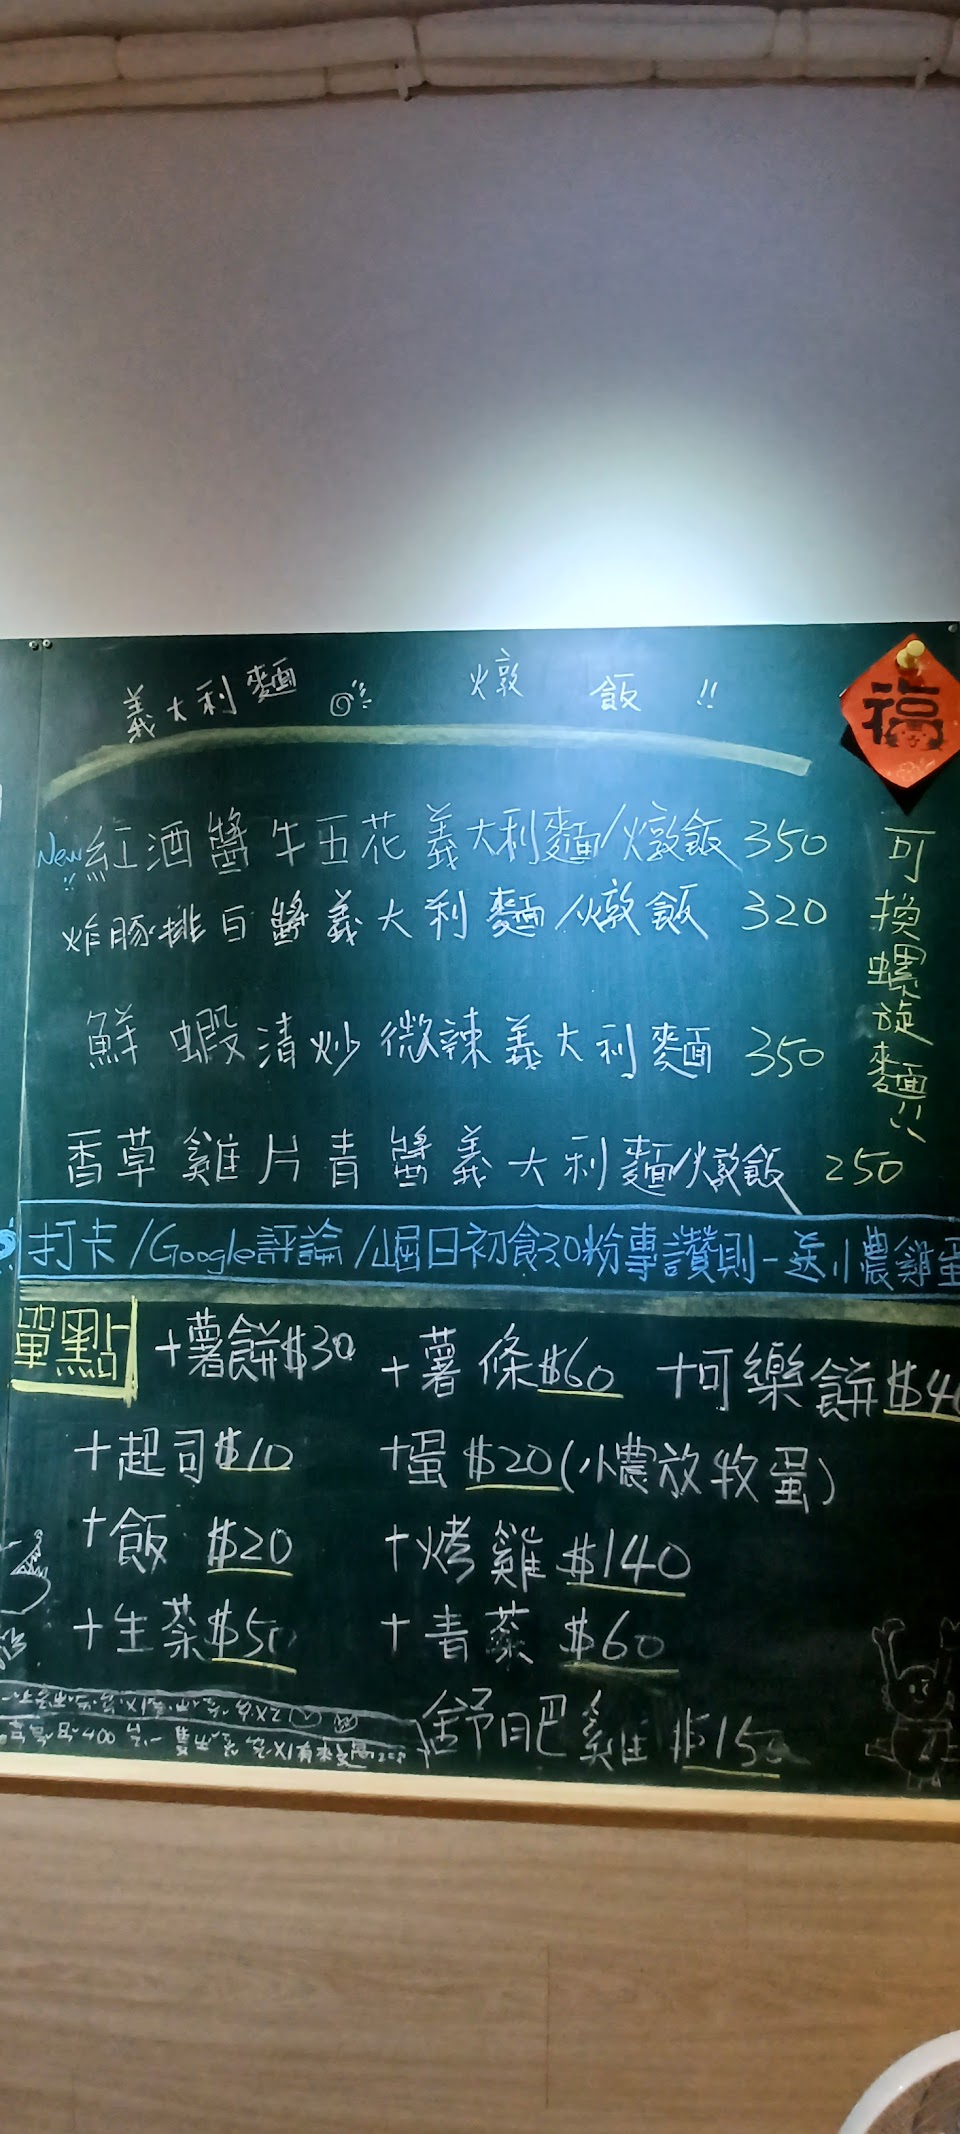 義大利麵 燉飯 !!
福
New!! 紅酒醬牛五花義大利麵/燉飯 350
炸豚排白醬義大利麵/燉飯 320
鮮蝦清炒微辣義大利麵 350
香草雞片青醬義大利麵/燉飯 250
可換螺旋麵
打卡/Google評論/崛日初食30粉專讚則一送小農雞蛋
單點
+薯餅$30 +薯條$60 +可樂餅$4
+起司$10 +蛋$20(小農放牧蛋)
+飯 $20 +烤雞$140
+生菜$50 +青菜 $60
舒肥雞 $15